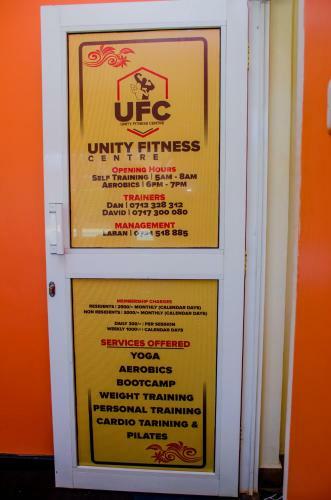 UFC
UNITY FITNESS CENTRE
UNITY FITNESS
CENTRE
OPENING HOURS
SELF TRAINING | 5AM - 8AM
AEROBICS | 6PM - 7PM
TRAINERS
DAN | 0712 328 312
DAVID | 0717 300 080
MANAGEMENT
LABAN | 0721 518 885
MEMBERSHIP CHARGES
RESIDENTS : 2500/= MONTHLY (CALENDAR DAYS)
NON RESIDENTS : 3000/= MONTHLY (CALENDAR DAYS)
DAILY 300/= : PER SESSION
WEEKLY 1000/= : CALENDAR DAYS
SERVICES OFFERED
YOGA
AEROBICS
BOOTCAMP
WEIGHT TRAINING
PERSONAL TRAINING
CARDIO TARINING &
PILATES